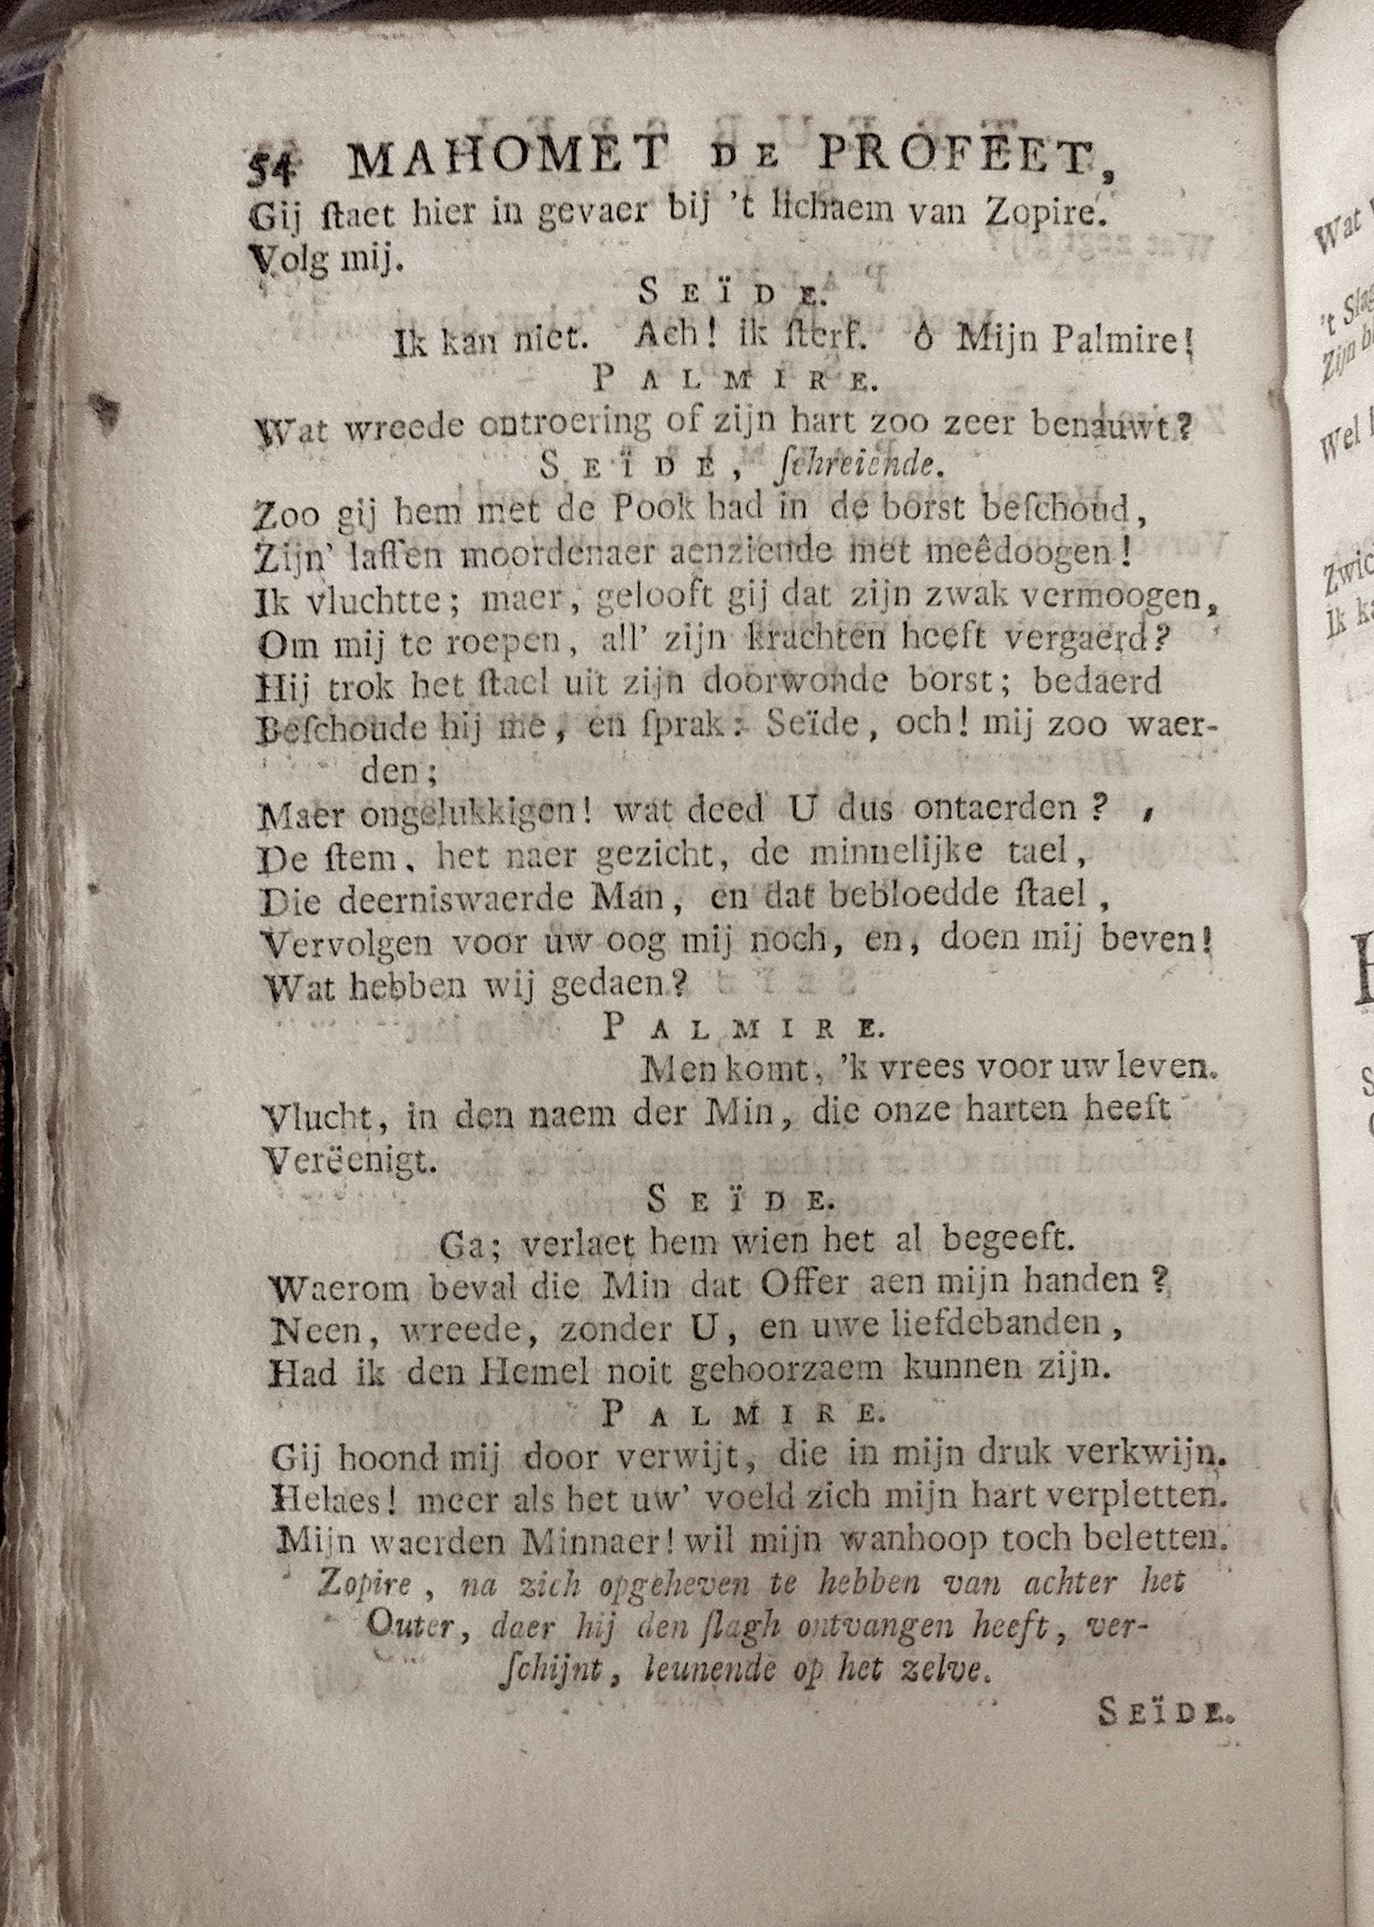 54 MAHOMET DE PROFEET,
Gij ſtaet hier in gevaer bij 't lichaem van Zopire.
Volg mij.
SEÏDE.
Ik kan niet. Ach! ik ſterf. ô Mijn Palmire!
PALMIRE.
Wat wreede ontroering of zijn hart zoo zeer benauwt?
SEÏDE, ſchreiende.
Zoo gij hem met de Pook had in de borst beſchoud,
Zijn' laſſen moordenaer aenziende met meêdoogen!
Ik vluchtte; maer, gelooft gij dat zijn zwak vermoogen,
Om mij te roepen, all' zijn krachten heeft vergaerd?
Hij trok het ſtael uit zijn doorwonde borst; bedaerd
Beſchoude hij me, en ſprak: Seïde, och! mij zoo waer-
den;
Maer ongelukkigen! wat deed U dus ontaerden?
De ſtem, het naer gezicht, de minnelijke tael,
Die deerniswaerde Man, en dat bebloedde ſtael,
Vervolgen voor uw oog mij noch, en, doen mij beven!
Wat hebben wij gedaen?
PALMIRE.
Men komt, 'k vrees voor uw leven.
Vlucht, in den naem der Min, die onze harten heeft
Verëenigt.
SEÏDE.
Ga; verlaet hem wien het al begeeft.
Waerom beval die Min dat Offer aen mijn handen?
Neen, wreede, zonder U, en uwe liefdebanden,
Had ik den Hemel noit gehoorzaem kunnen zijn.
PALMIRE.
Gij hoond mij door verwijt, die in mijn druk verkwijn.
Helaes! meer als het uw' voeld zich mijn hart verpletten.
Mijn waerden Minnaer! wil mijn wanhoop toch beletten.
Zopire, na zich opgeheven te hebben van achter het
Outer, daer hij den ſlagh ontvangen heeft, ver-
ſchijnt, leunende op het zelve.
SEÏDE.
Wat
't Slag
Zijn
Wel
Ik